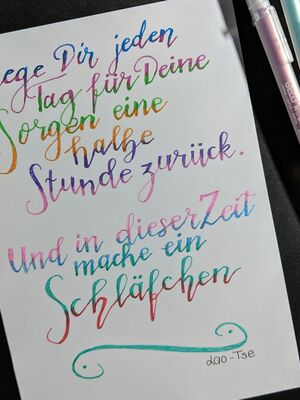 ege Dir jeden
Tag für Deine
Sorgen eine
halbe
Stunde zurück.
Und in dieser Zeit
mache ein
Schläfchen
Lao-Tse